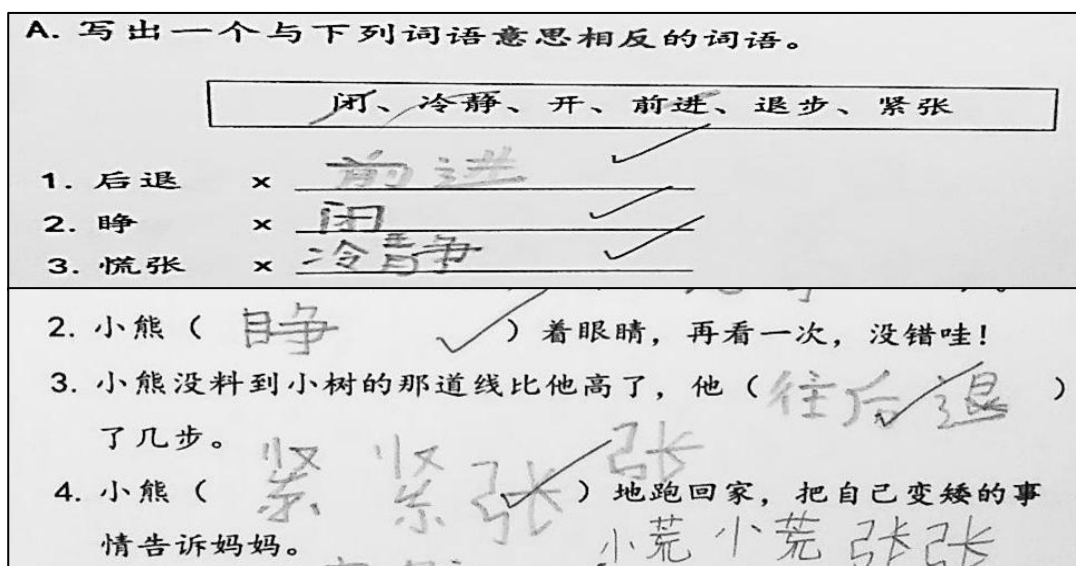 A. 写出一个与下列词语意思相反的词语。
闭、冷静、开、前进、退步、紧张
1. 后退 × 前进
2. 睁 × 闭
3. 慌张 × 冷静
2. 小熊（ 睁 ）着眼睛，再看一次，没错哇！
3. 小熊没料到小树的那道线比他高了，他（ 往后退 ）
了几步。
4. 小熊（ 紧紧张张 ）地跑回家，把自己变矮的事
情告诉妈妈。 慌慌张张